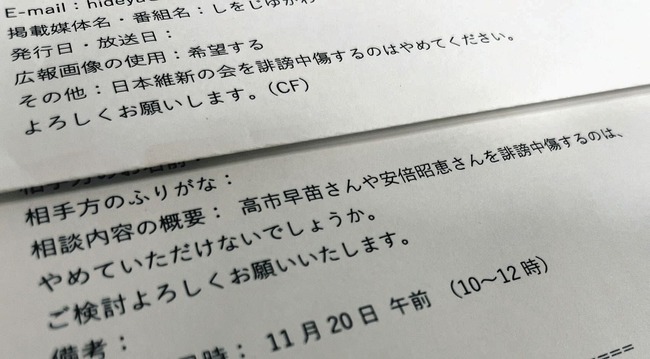 E-mail：hideya
掲載媒体名・番組名：しをじゅかわ
発行日・放送日：
広報画像の使用：希望する
その他：日本維新の会を誹謗中傷するのはやめてください。
よろしくお願いします。（CF）
相手方のふりがな：
相談内容の概要： 高市早苗さんや安倍昭恵さんを誹謗中傷するのは、
やめていただけないでしょうか。
ご検討よろしくお願いいたします。
備考：
時： 11月20日 午前 （10〜12時）